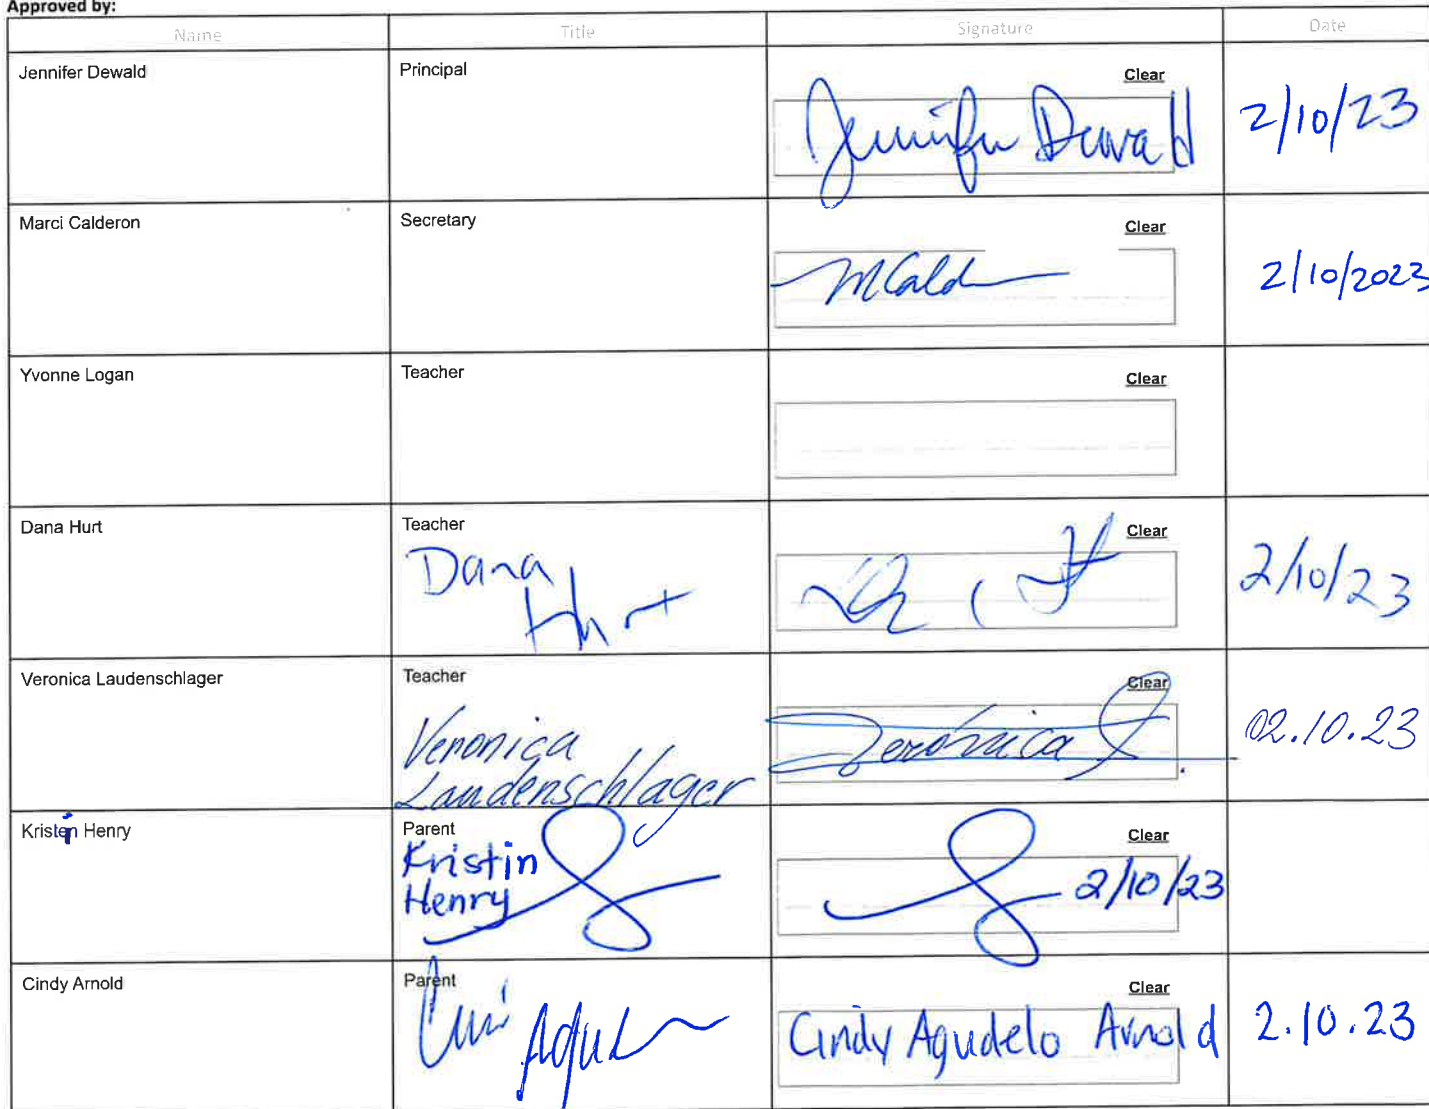 Approved by:
Name Title Signature Date
Jennifer Dewald Principal Clear
Jennifer Dewald 2/10/23
Marci Calderon Secretary Clear
MCald 2/10/2023
Yvonne Logan Teacher Clear
Dana Hurt Teacher Clear
Dana
Hurt
2/10/23
Veronica Laudenschlager Teacher Clear
Veronica
Laudenschlager
Veronica L. 02.10.23
Kristin Henry Parent Clear
Kristin
Henry
2/10/23
Cindy Arnold Parent Clear
Cindy Agudelo Arnold 2.10.23